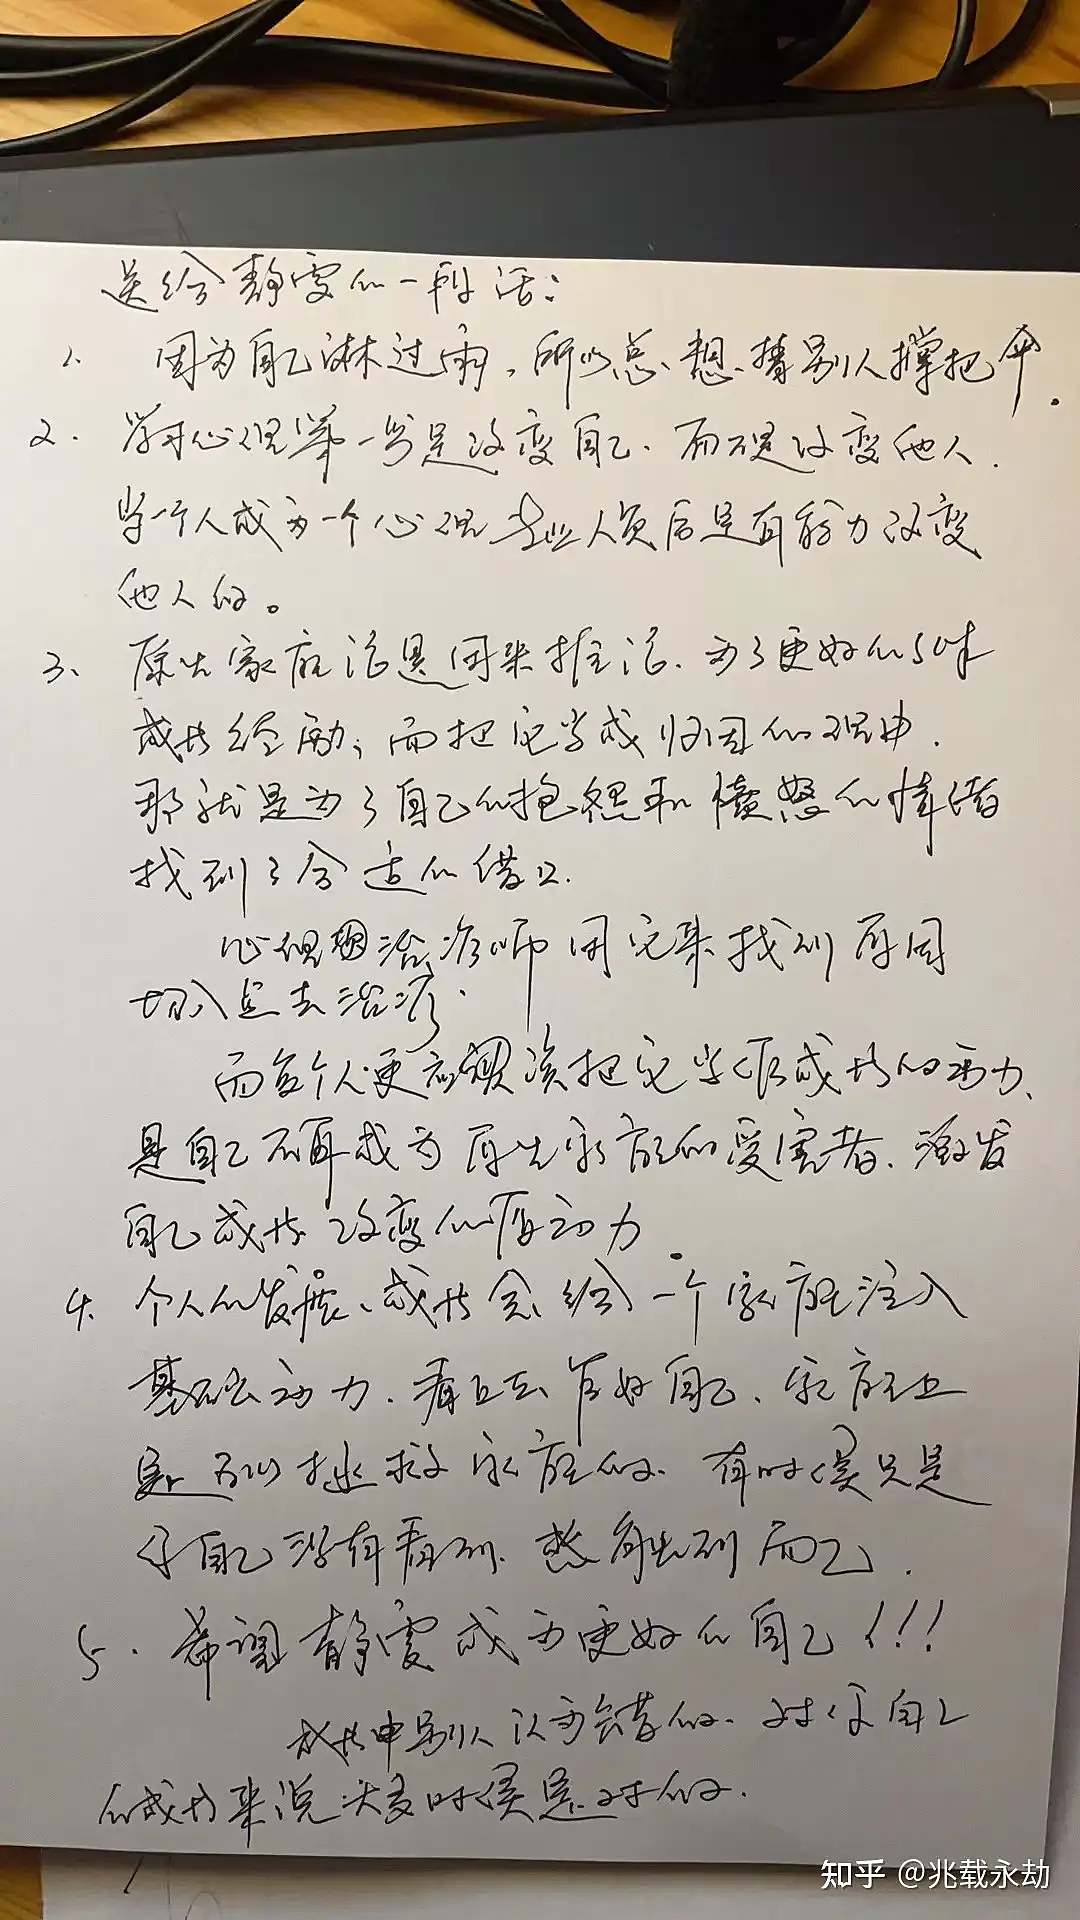 送给静雯的一段话：
1. 因为自己淋过雨，所以总想替别人撑把伞。
2. 学习心理第一步是改变自己，而不是改变他人，
当一个人成为一个心理专业人员后是有能力改变
他人的。
3、原生家庭论是用来推论，为了更好的
成长经历；而把它当成归因的理由，
那就是为了自己的抱怨和愤怒的情绪
找到了合适的借口.
心理治疗师用它来找到原因
切入点去治疗.
而每个人更应该把它当作成长的动力、
是自己不再成为原生家庭的受害者，激发
自己成长改变的原动力。
4. 个人的发展、成长会给一个家庭注入
基础动力，看上去管好自己，家庭
拯救家庭的、有时侯只是
你自己没有看到、感受到而已.
5. 希望静雯成为更好的自己!!!
成长中别人认为错的、对你自己
的成长来说大多时侯是对的.
知乎 @兆载永劫